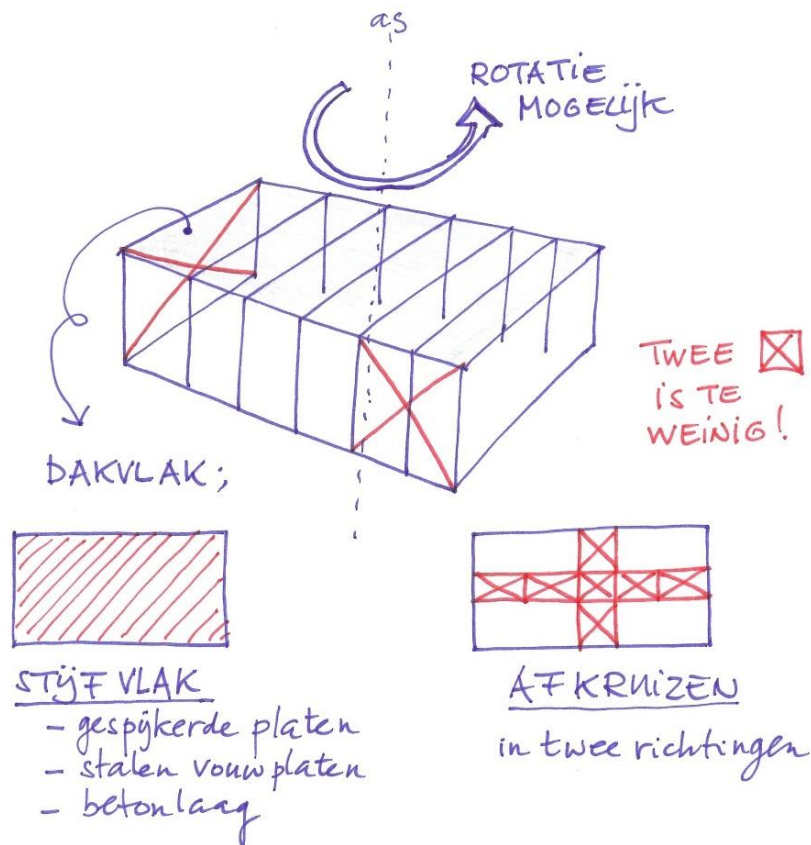 as
ROTATIE
MOGELIJK
TWEE
IS TE
WEINIG!
DAKVLAK;
STIJF VLAK
- gespijkerde platen
- stalen vouwplaten
- betonlaag
AFKRUIZEN
in twee richtingen